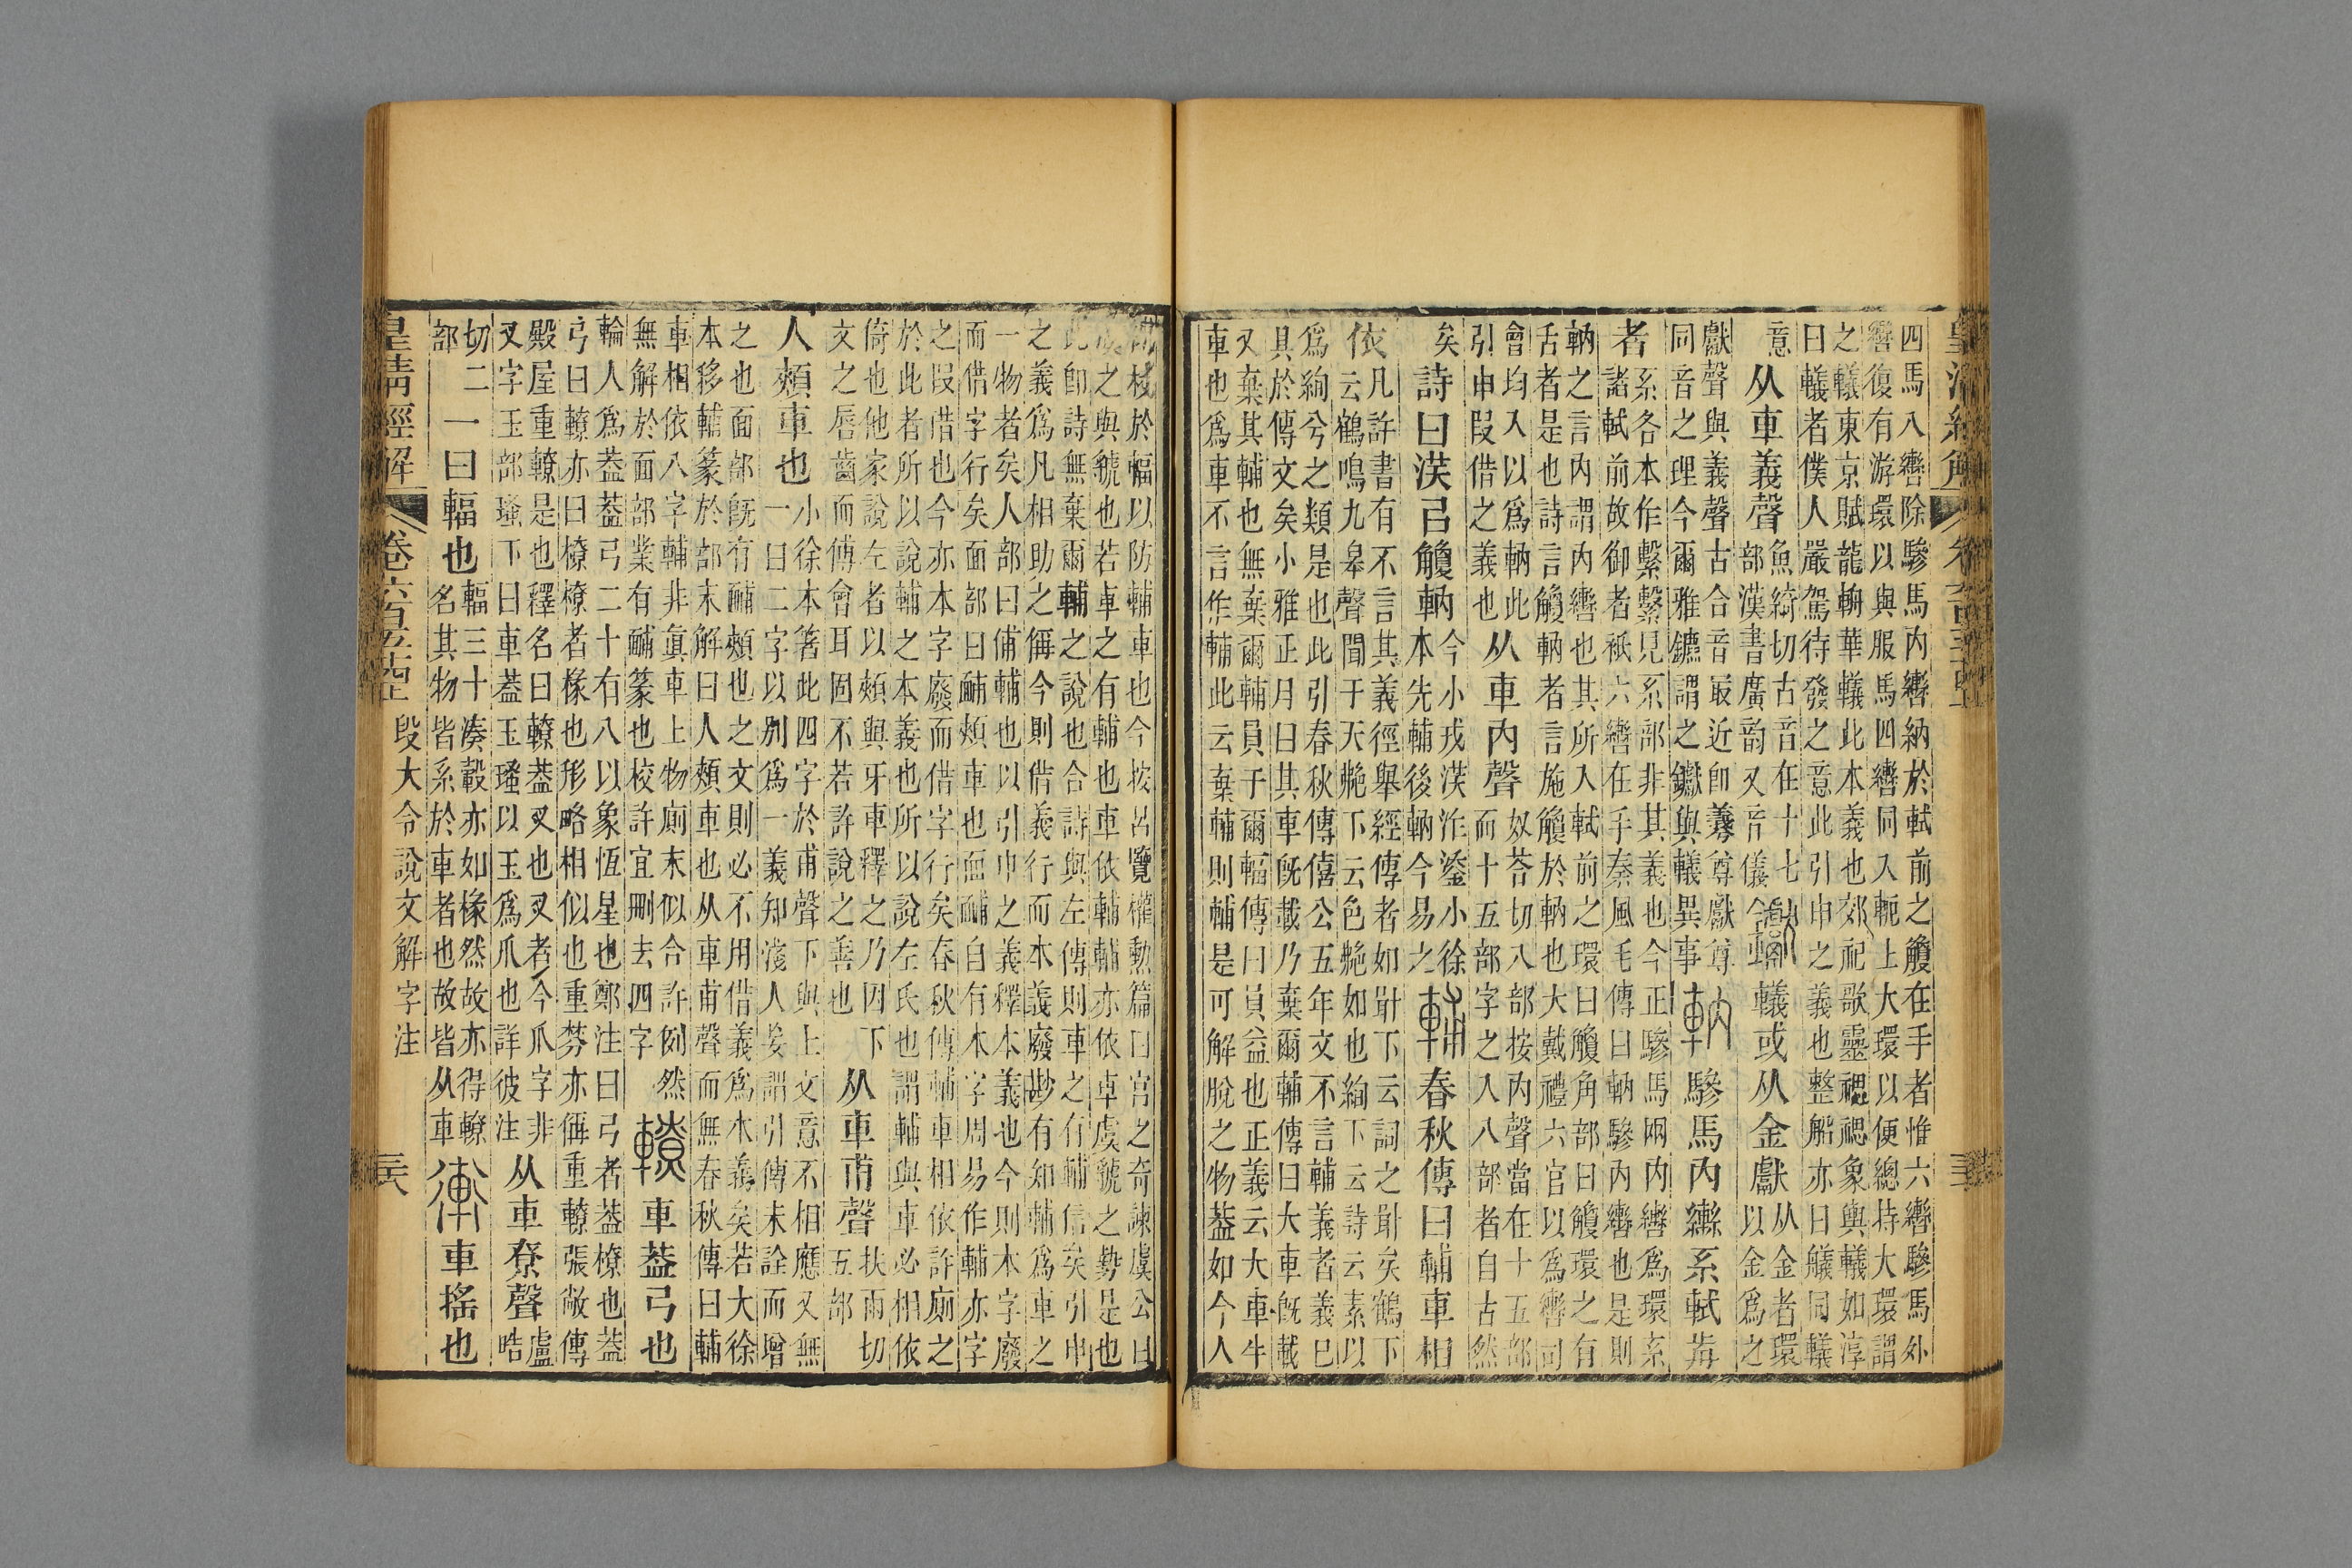 皇清經解
四馬八轡除驂馬內轡納於軾前之觼在手者惟六轡驂馬外
轡復有游環以與服馬四轡同入軶上大環以便總持大環謂
之轙東京賦龍輈華轙此本義也郊祀歌靈禗禗象輿轙如淳
曰轙者僕人嚴駕待發之意此引申之義也整解亦曰艤同轙
意 从車義聲 魚綺切古音在十七
部漢書廣韵又音儀 今 轙或从金獻 从金者環
以金爲之
獻聲與義聲古合音最近卽羛尊獻尊
同音之理今爾雅鑣謂之钀與轙異事 軜 驂馬內轡系軾前
者 系各本作繫繫見系部非其義也今正驂馬兩內轡爲環系
諸軾前故御者衹六轡在手秦風毛傳曰軜驂內轡也是則
軜之言內謂內轡也其所入軾前之環曰觼角部曰觼環之有
舌者是也詩言觼軜者言施觼於軜也大戴禮六官以爲轡司
會均入以爲軜此
引申叚借之義也 从車內聲 奴荅切八部按內聲當在十五部
而十五部字之入八部者自古然
矣 詩曰渶㠯觼軜 今小戎渶作鋈小徐
本先輔後軜今易之 輔 春秋傳曰輔車相
依 凡許書有不言其義徑舉經傳者如㔁下云詞之㔁矣鶴下
云鶴鳴九臯聲聞于天艴下云色艴如也絢下云詩云素以
爲絢兮之類是也此引春秋傳僖公五年文不言輔義者義已
具於傳文矣小雅正月曰其車旣載乃棄爾輔傳曰大車旣載
又棄其輔也無棄爾輔員于爾輻傳曰員益也正義云大車牛
車也爲車不言作輔此云棄輔則輔是可解脫之物葢如今人
縛杖於輻以防輔車也今按呂覽權勳篇曰宮之奇諫虞公曰
虞之與虢也若車之有輔也車依輔輔亦依車虞虢之勢是也
此卽詩無棄爾輔之說也合詩與左傳則車之有輔信矣引申
之義爲凡相助之偁今則借義行而本義廢尟有知輔爲車之
一物者矣人部曰俌輔也以引申之義釋本義也今則本字廢
而借字行矣面部曰酺頰車也面酺自有本字周易作輔亦字
之叚借也今亦本字廢而借字行矣春秋傳輔車相依許廁之
於此者所以說輔之本義也所以說左氏也謂輔與車必相依
倚也他家說左者以頰與牙車釋之乃因下
文之脣齒而傅會耳固不若許說之善也 从車甫聲 扶雨切
五部
人頰車也 小徐本箸此四字於甫聲下與上文意不相應又無
一曰二字以別爲一義知淺人妄謂引傳未詮而增
之也面部旣有酺頰也之文則必不用借義爲本義矣若大徐
本移輔篆於部末解曰人頰車也从車甫聲而無春秋傳曰輔
車相依八字輔非眞車上物廁末似合許例然
無解於面部業有酺篆也校許宜刪去四字 轑 車葢弓也
輪人爲葢葢弓二十有八以象恆星也鄭注曰弓者葢橑也葢
弓曰轑亦曰橑橑者椽也形略相似也重棼亦偁重轑張敞傳
殿屋重轑是也釋名曰轑葢叉也叉者今爪字非
叉字玉部瑵下曰車葢玉瑵以玉爲爪也詳彼注 从車尞聲 盧
皓
切二
部 一曰輻也 輻三十湊轂亦如椽然故亦得轑
名其物皆系於車者也故皆从車 車搖也
皇清經解 卷六百五十四上 段大令說文解字注